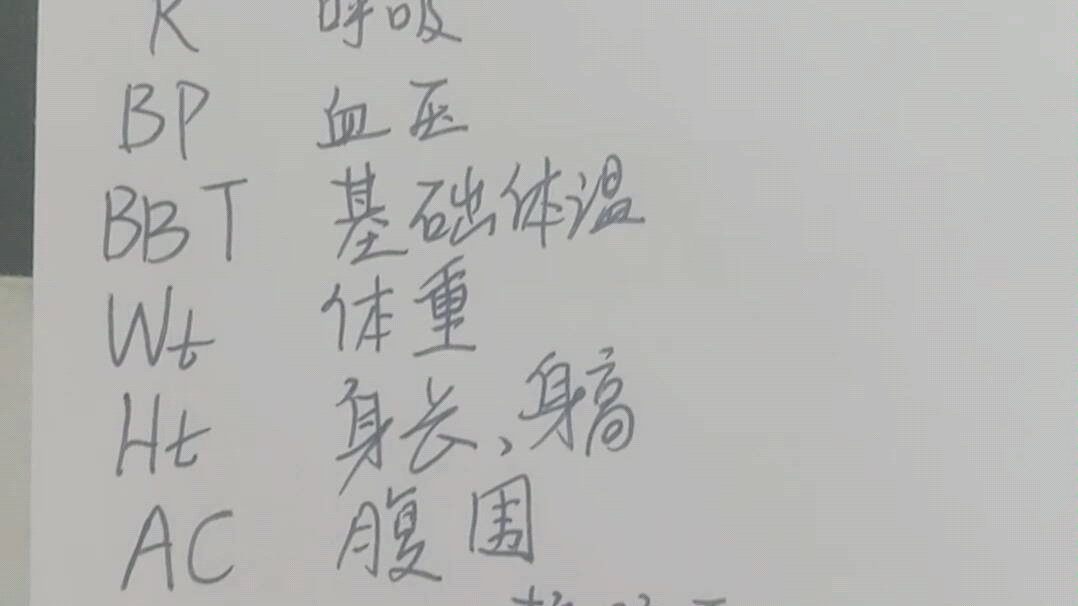 R 呼吸
BP 血压
BBT 基础体温
Wt 体重
Ht 身长、身高
AC 腹围